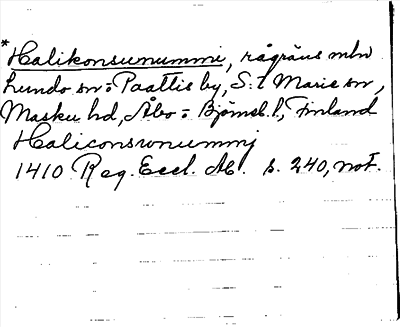 *Halikonsunummi, rågräns mln
Lundo sn o. Paattis by, S:t Marie sn,
Masku hd, Åbo o. Björneb. l., Finland
Haliconswnummj
1410 Reg. Eccl. Ab. s. 240, not.